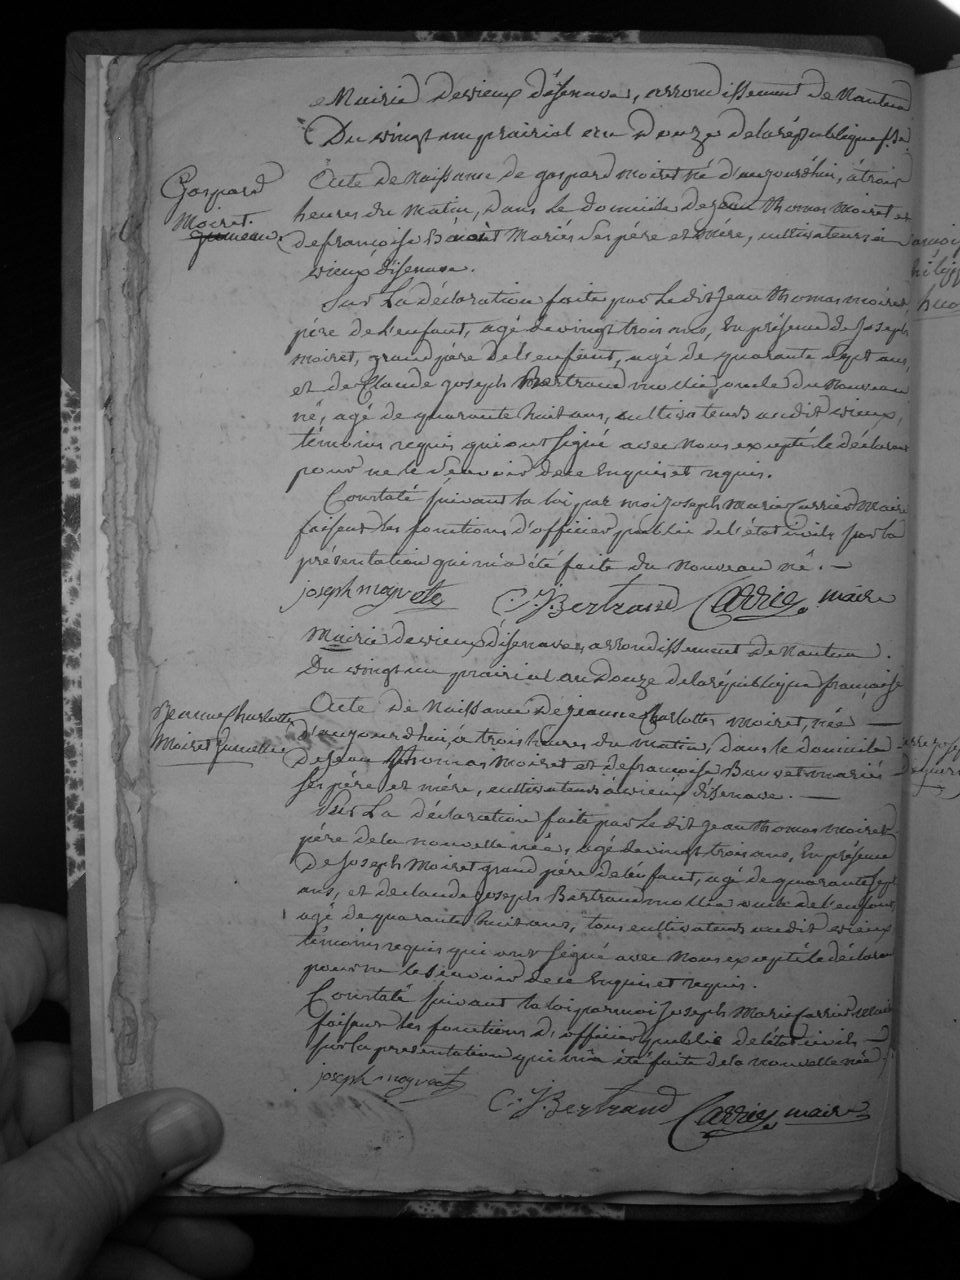 Mairie de vieux d'isenave, arrondissement de Nantua
Du vingt un prairial an Douze de la république fse
Gaspard
Moiret
gumeau
Acte de Naissance de gaspard moiret né d'aujourdhui, à trois
heures du Matin, Dans le domicile de jean thomas moiret et
de françoise Mariés ses père et mère, cultivateurs à
vieux d'isenave.
Sur La déclaration faite par le dit jean thomas moiret,
père de l'enfant, agé de vingt trois ans, En présence de joseph
moiret, grand père de l'enfant, agé de quarante sept ans,
et de Claude joseph Bertrand mollie oncle du nouveau
né, agé de quarante huit ans, cultivateurs audit vieux,
témoins requis qui ont signé avec nous excepté le déclarant
pour ne le savoir de ce Enquis et requis.
Constaté suivant la loi par moi joseph marie carrier Maire
faisant les fonctions d'officier public de l'état civils sur la
présentation qui m'a été faite du nouveau né. —
joseph C. J. Bertrand Carrier maire
Mairie de vieux d'isenave arrondissement de Nantua.
Du vingt un prairial an Douze de la république française
jeanne Charlotte
Moiret jumelle
Acte de Naissance de jeanne charlotte moiret, née —
d'aujourdhui, à trois heures du matin, dans le domicile
de jean thomas moiret et de françoise mariés
ses père et mère, cultivateurs à vieux d'isenave. —
Sur La déclaration faite par le dit jean thomas moiret
père de la nouvelle née, agé de vingt trois ans, En présence
De joseph Moiret grand père de l'enfant, agé de quarante sept
ans, et de claude joseph Bertrand mollie oncle de l'enfant,
agé de quarante huit ans, tous cultivateurs audit vieux
témoins requis qui ont signé avec nous excepté le déclarant
pour ne le savoir de ce Enquis et requis.
Constaté suivant la loi par moi joseph Marie Carrier Maire
faisant les fonctions d'officier public de l'état civils —
sur la présentation qui m'a été faite de la nouvelle née
joseph C. J. Bertrand Carrier maire